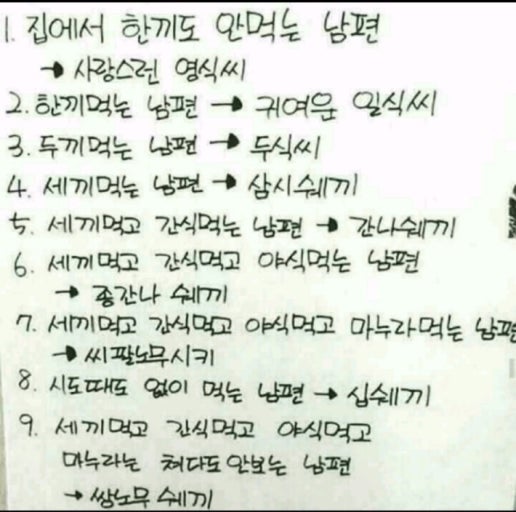 1. 집에서 한끼도 안먹는 남편
→ 사랑스런 영식씨
2. 한끼먹는 남편 → 귀여운 일식씨
3. 두끼먹는 남편 → 두식씨
4. 세끼먹는 남편 → 삼시쉐끼
5. 세끼먹고 간식먹는 남편 → 간나쉐끼
6. 세끼먹고 간식먹고 야식먹는 남편
→ 종간나 쉐끼
7. 세끼먹고 간식먹고 야식먹고 마누라먹는 남편
→ 씨팔노무시키
8. 시도때도 없이 먹는 남편 → 십쉐끼
9. 세끼먹고 간식먹고 야식먹고
마누라는 쳐다도안보는 남편
→ 쌍노무 쉐끼